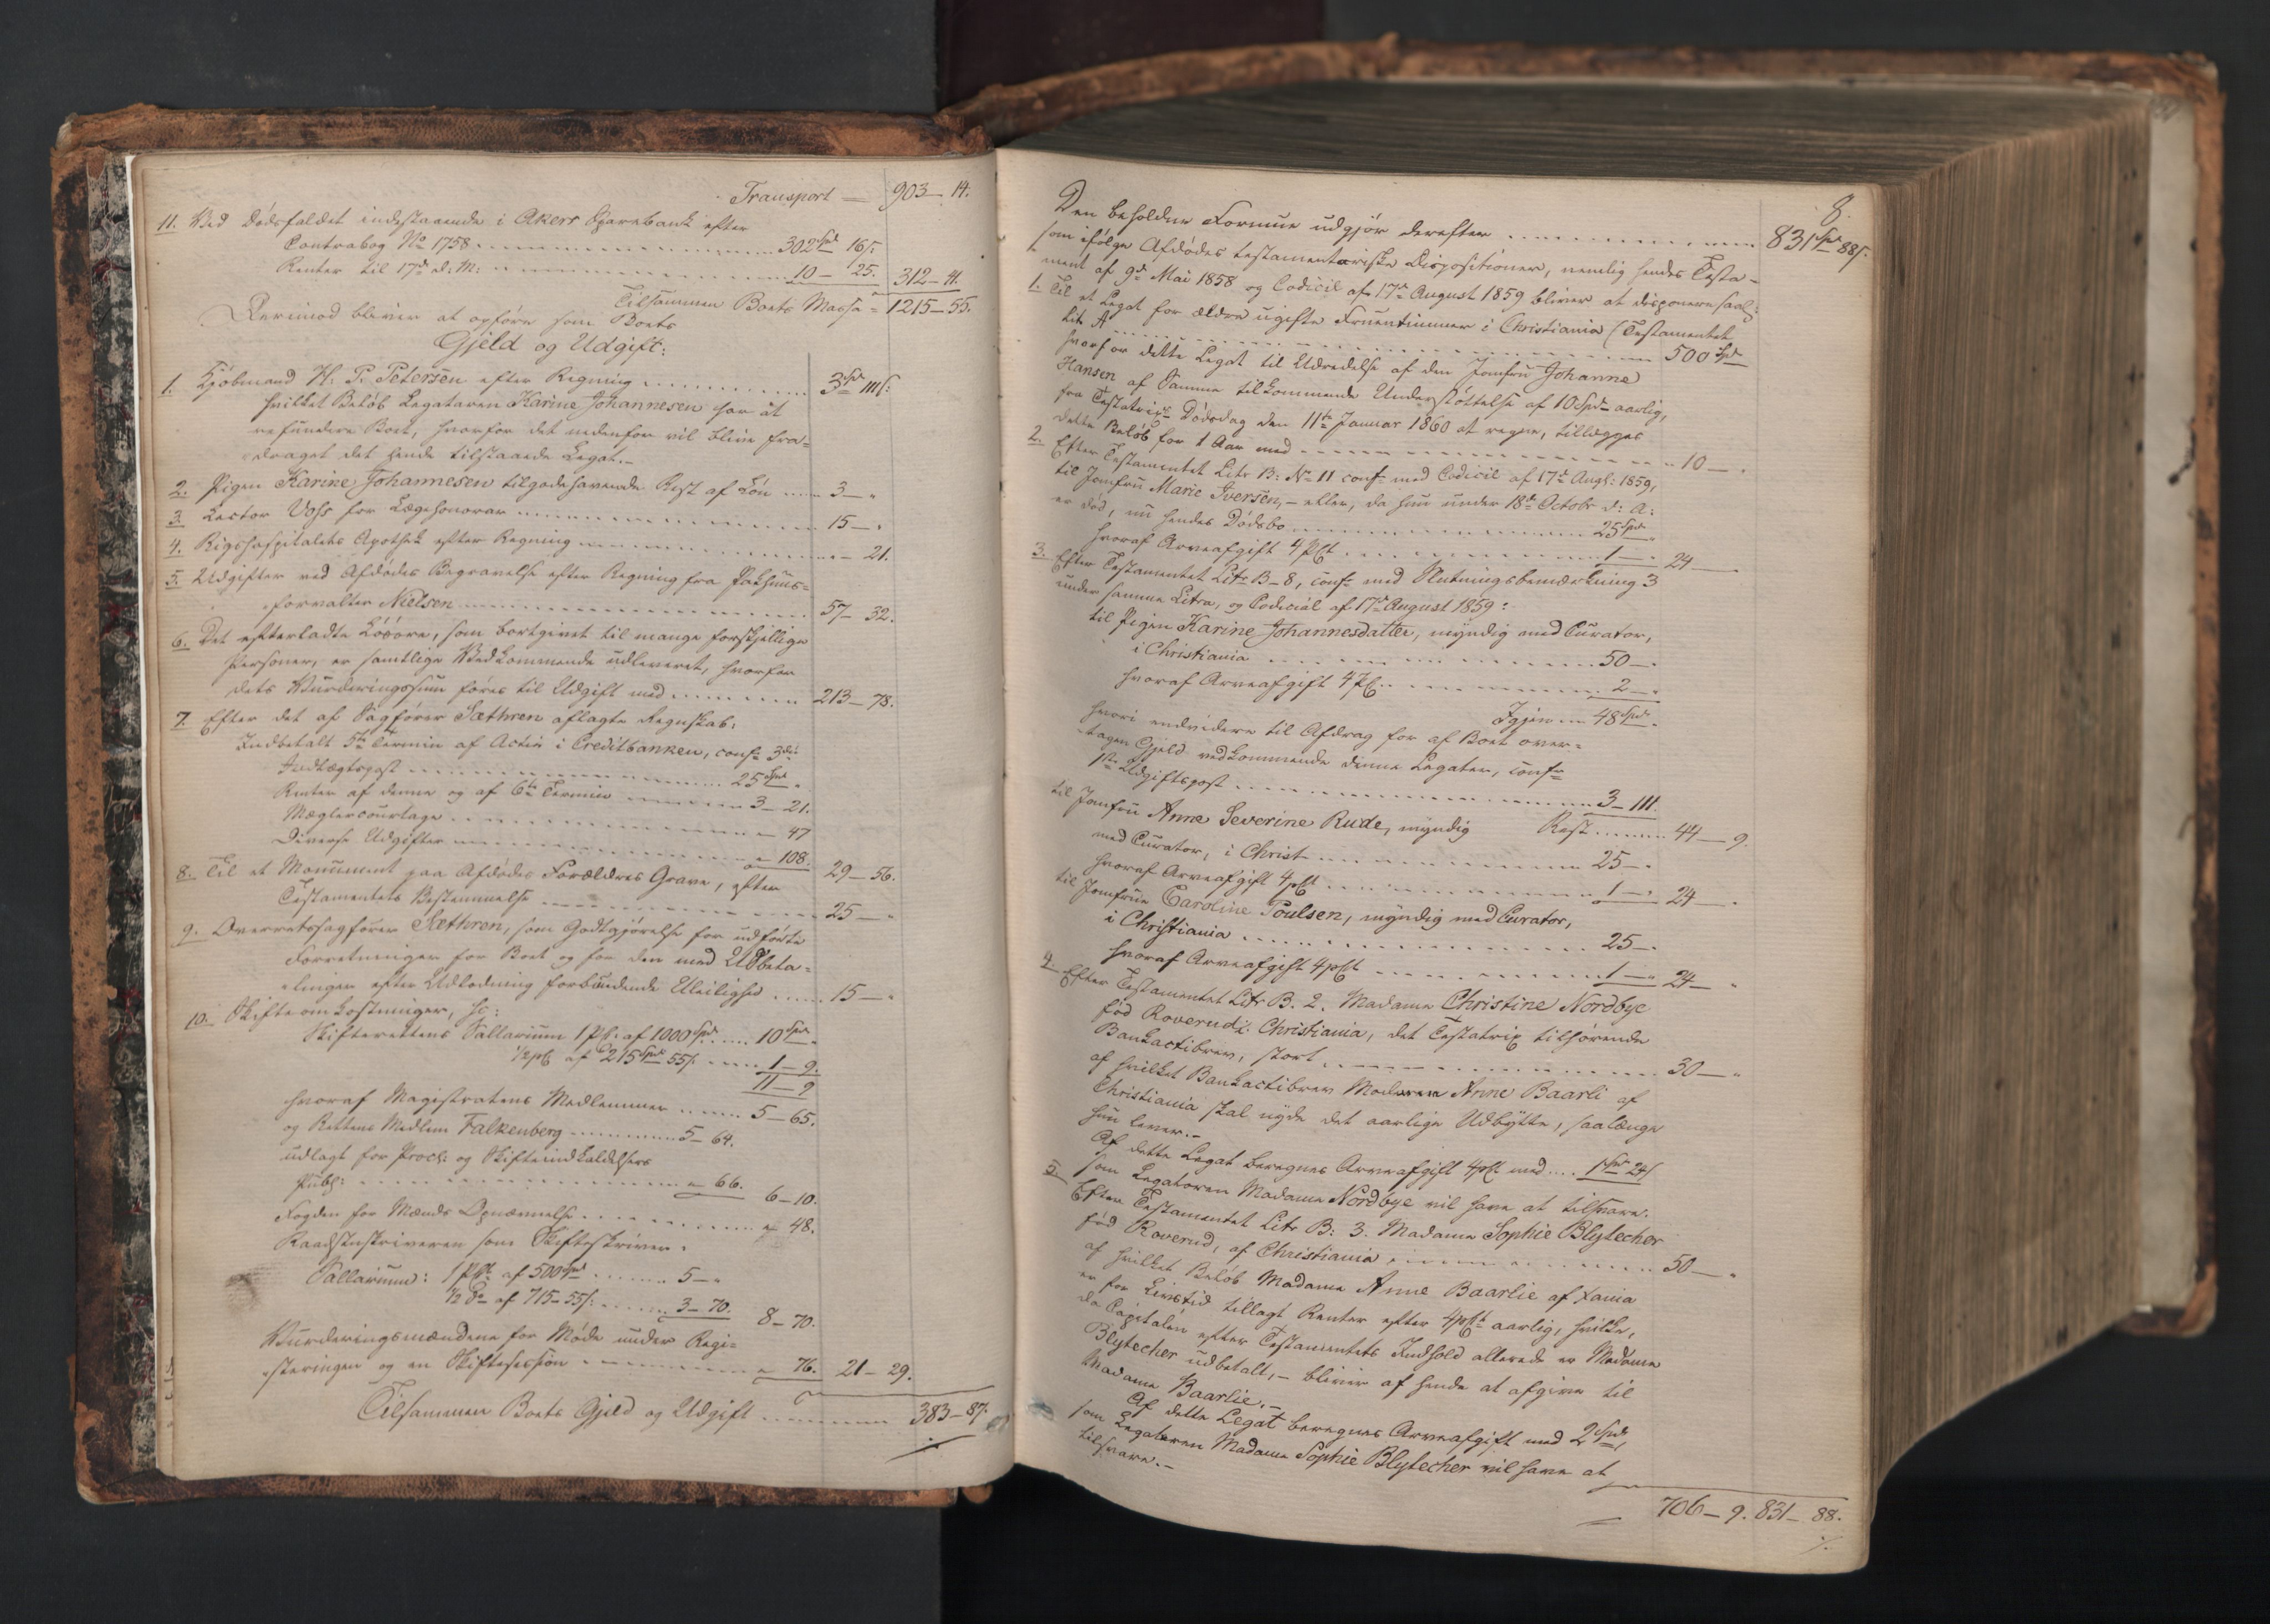 Transport — 903 — 14.
11. Ved Dødsfaldet indestaaende i Akers Sparebank efter
Contrabog No 1758 . . . . 302 Spd 16 s.
Renter til 17de d: M: . . . . 10 — 25. 312 — 41.
Tilsammen Boets Massa = 1215 — 55.
Derimod bliver at opføre som Boets
Gjeld og Udgift:
1. Kjøbmand H. P. Petersen efter Regning . . . . 3 Spd 111 s:
hvilket Beløb Legataren Karine Johannesen har at
refundere Boet, hvorfor det nedenfor vil blive fra-
draget det hende tilstaaede Legat. —
2. Pigen Karine Johannesen tilgodehavende Rest af Løn . . . . 3 — "
3. Lector Voss for Lægehonorar . . . . 15 — "
4. Rigshospitalets Apothek efter Regning . . . . " — 21.
5. Udgifter ved Afdødes Begravelse efter Regning fra Pakhuus-
forvalter Nielsen . . . . 57 — 32.
6. Det efterladte Løsøre, som bortgivet til mange forskjellige
Personer, er samtlige Vedkommende udleveret, hvorfor
dets Vurderingssum føres til Udgift med . . . . 213 — 78.
7. Efter det af Sagfører Sæthren aflagte Regnskab:
Indbetalt 5te Termin af Actie i Creditbanken, confr 3die
Indtægtspost . . . . 25 Spd "
Renter af denne og af 6te Termin . . . . 3 — 21.
Mæglercourtage . . . . " — 47
Diverse Udgifter . . . . " — 108. 29 — 56.
8. Til et Monument paa Afdødes Forældres Grave, efter
Testamentets Bestemmelse . . . . 25 — "
9. Overretssagfører Sæthren, som Godtgjørelse for udførte
Forretninger for Boet og for den med Udbeta-
linger efter Udlodning forbundende Uleilighed . . . . 15 — "
10. Skifteomkostninger, sc:
Skifterettens Sallarium 1 pCt: af 1000 Spd . . . . 10 Spd "
1/2 pCt af 215 Spd 55 s. . . . . 1 — 9.
11 — 9
hvoraf Magistratens Medlemmer . . . . 5 — 65.
og Rettens Medlem Falkenberg . . . . 5 — 64.
udlagt for Procl: og Skifteindkaldelsers
Publ: . . . . " — 66. 6 — 10.
Fogden for Mænds Opnævnelse . . . . " — 48.
Raadstuskriveren som Skifteskriver:
Sallarium: 1 pCt af 500 Spd . . . . 5 — "
1/2 do af 715 — 55 s: . . . . 3 — 70. 8 — 70.
Vurderingsmændene for Møde under Regi-
steringen og en Skiftesession . . . . " — 76. 21 — 29.
Tilsammen Boets Gjeld og Udgift . . . . 383 — 87.
8.
Den beholdne Formue udgjør derefter . . . . 831 Spd 88 s.
som ifølge Afdødes testamentariske Dispositioner, nemlig hendes Testa-
ment af 9de Mai 1858 og Codicil af 17de August 1859 bliver at disponere saal:
1. Til et Legat for ældre ugifte Fruentimmer i Christiania (Testamentet
Litr A . . . . 500 Spd
hvorfor dette Legat til Udredelse af den Jomfru Johanne
Hansen af Samme tilkommende Understøttelse af 10 Spd aarlig,
fra Testatrix's Dødsdag den 11te Januar 1860 at regne, tillægges
dette Beløb for 1 Aar med . . . . " 10 — "
2. Efter Testamentet Litr B: No 11 confr med Codicil af 17de Augs: 1859,
til Jomfru Marie Iversen, — eller, da hun under 18de Octobr d: A:
er død, nu hendes Dødsbo . . . . 25 Spd
hvoraf Arveafgift 4 pCt . . . . 1 — " 24 — "
3. Efter Testamentet Litr B — 8, confr med Slutningsbemærkning 3
under samme Litra, og Codicial af 17de August 1859:
til Pigen Karine Johannesdatter, myndig med Curator,
i Christiania . . . . 50 — "
hvoraf Arveafgift 4 pCt . . . . 2 — "
Igjen . . . 48 Spd "
hvori endvidere til Afdrag for af Boet over-
tagen Gjeld vedkommende denne Legatar, confr
1ste Udgiftspost . . . . 3 — 111.
Rest . . . . 44 — 9.
til Jomfru Anne Severine Rude, myndig
med Curator, i Christ . . . . 25 — "
hvoraf Arveafgift 4 pCt . . . . 1 — " 24 — "
til Jomfrue Caroline Poulsen, myndig med Curator,
i Christiania . . . . 25 — "
hvoraf Arveafgift 4 pCt . . . . 1 — " 24 — "
4. Efter Testamentet Litr B. 2. Madame Christine Nordbye
fød Roverud i Christiania, det Testatrix tilhørende
Bankactibrev, stort . . . . 30 — "
af hvilket Bankactibrev Madame Anne Baarli af
Christiania skal nyde det aarlige Udbytte, saalænge
hun lever. —
Af dette Legat beregnes Arveafgift 4 pCt med . . . . 1 Spd 24 s
som Legataren Madame Nordbye vil have at tilsvare.
5. Efter Testamentet Litr B: 3. Madame Sophie Blytecher
fød Roverud, af Christiania . . . . 50 — "
af hvilket Beløb Madame Anne Baarlie af Xania
er for Livstid tillagt Renter efter 4 pCt aarlig, hvilke,
da Capitalen efter Testamentets Indhold allerede er Madame
Blytecher udbetalt, — bliver af hende at afgive til
Madame Baarlie. —
Af dette Legat beregnes Arveafgift med 2 Spd,
som Legataren Madame Sophie Blytecher vil have at
tilsvare. —
706 — 9. 831 — 88.